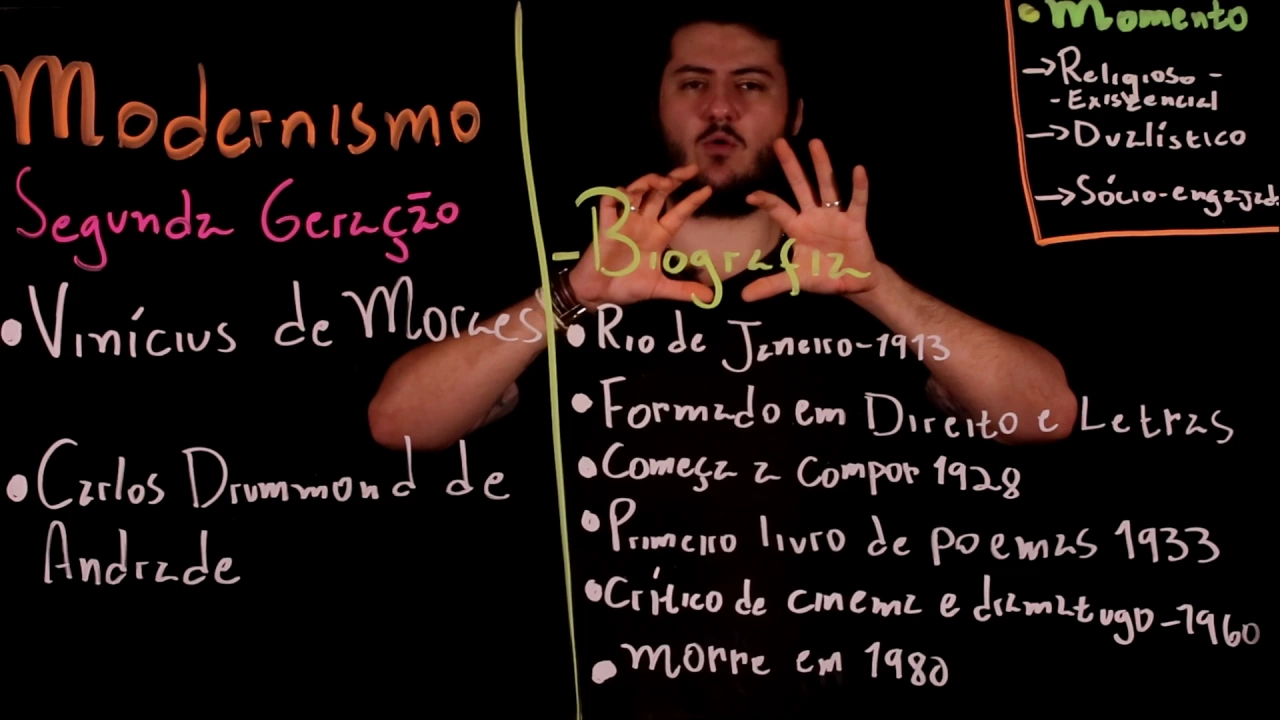 Modernismo
Segunda Geração
• Vinícius de Moraes
• Carlos Drummond de
Andrade
- Biografia
• Rio de Janeiro-1913
• Formado em Direito e Letras
• Começa a compor 1928
• Primeiro livro de poemas 1933
• Crítico de cinema e dramatugo-1960
• morre em 1980
• Momento
→ Religioso -
- Existencial
→ Dualístico
→ Sócio-engajad